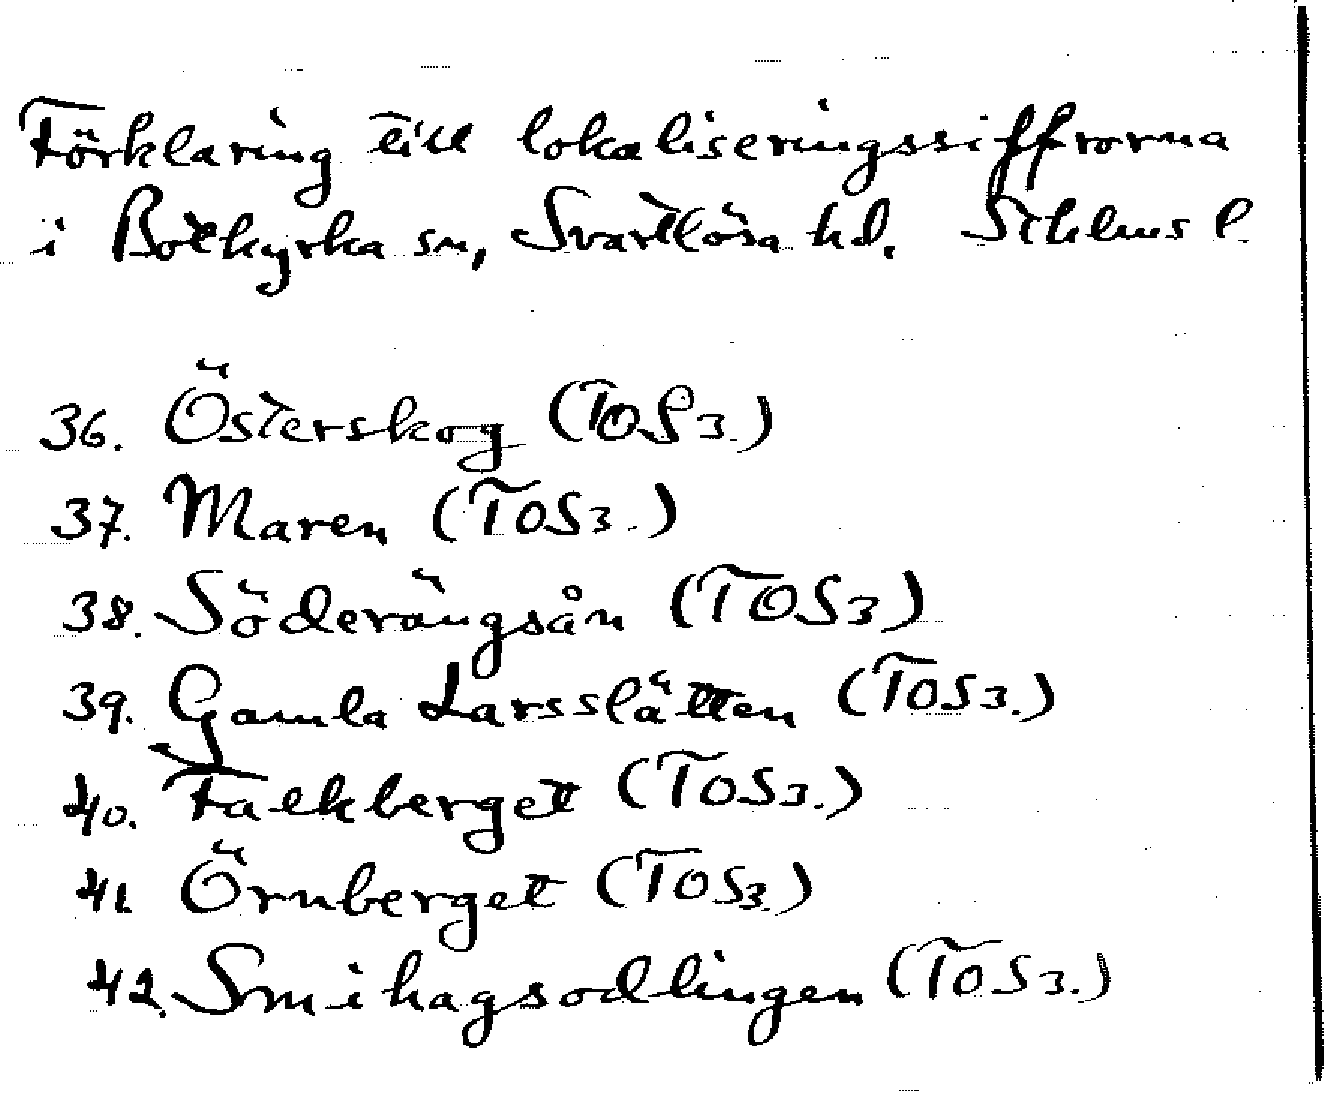 Förklaring till lokaliseringssiffrorna
i Botkyrka sn, Svartlösa hd. Sthlms l.
36. Österskog (TOS3.)
37. Maren (TOS3.)
38. Söderängsån (TOS3)
39. Gamla Larsslätten (TOS3.)
40. Falkberget (TOS3.)
41. Örnberget (TOS3.)
42. Smihagsodlingen (TOS3.)